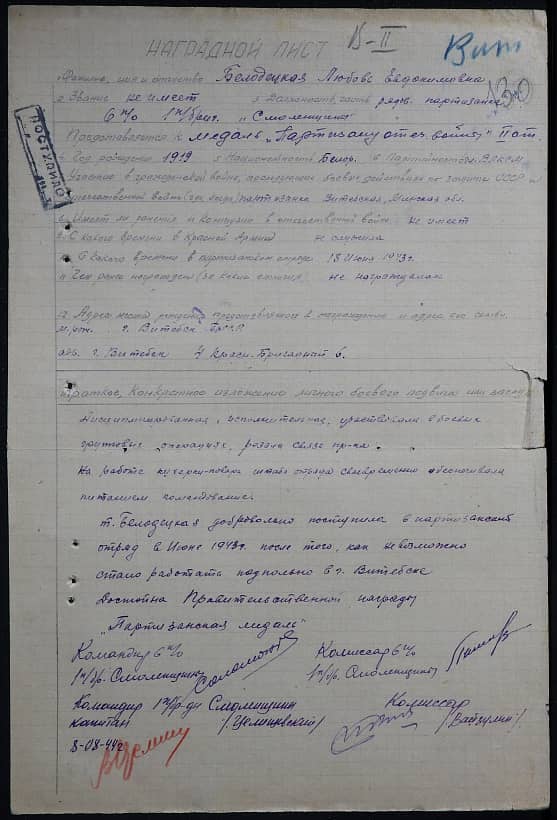 В-II
Вит
130
НАГРАДНОЙ ЛИСТ
Фамилия, имя и отчество Белодецкая Любовь Евдокимовна
2. Звание не имеет 3. Должность, часть рядов. партизанка
6 п/о 1 п/бриг. "Смоленщина"
Представляется к медаль "Партизану отеч. войны" II ст.
Год рождения 1919 Национальность Белор. 6 Партийность ВЛКСМ
Участие в гражданской войне, последующих боевых действиях по защите СССР и
отечественной войне партизанка Витебская, Минская обл.
Имеет ли ранения и контузии в отечественной войне не имеет
С какого времени в Красной Армии не служила
С какого времени в партизанском отряде 18 Июня 1943г.
Чем ранее награжден не награждалась
12 Адрес места рождения представляемого к награждению и адрес его семьи.
м. рож. г. Витебск БССР
адр. г. Витебск
Краткое, конкретное изложение личного боевого подвига или заслуг
Дисциплинированная, исполнительная, участвовала в боевых
групповых операциях, связи пр-ка.
На работе отряда своевременно обеспечивала
питанием командование.
т. Белодецкая добровольно поступила в партизанский
отряд в Июне 1943г. после того, как невозможно
стало работать подпольно в г. Витебске
Достойна Правительственной награды
"Партизанская медаль"
Командир 6 п/о Комиссар 6 п/о
1 п/бр. Смоленщина 1 п/бр. Смоленщина
Командир 1 п/бр-ды Смоленщина Комиссар
капитан
8-08-44г.